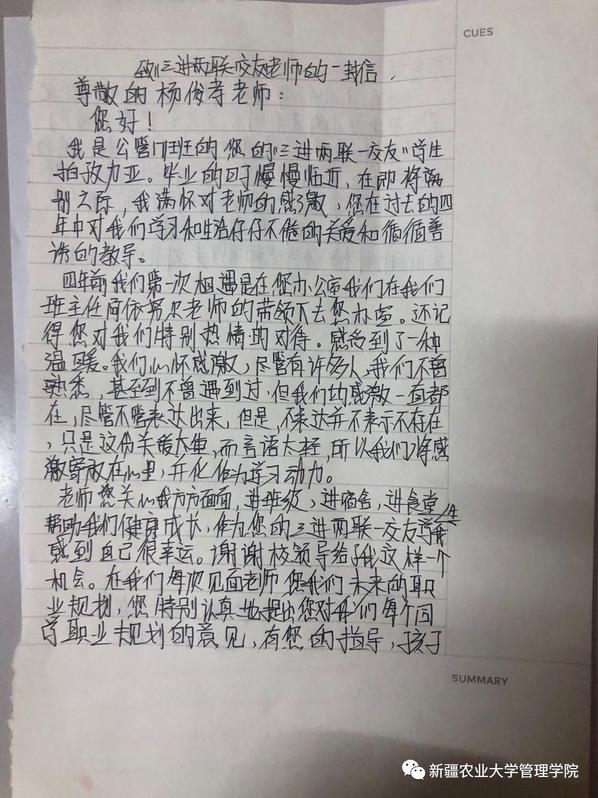 致"三进两联一交友"老师的一封信
CUES
尊敬的杨俊孝老师：
您好！
我是公管171班的您的"三进两联一交友"学生
拍孜力亚。毕业的日子慢慢临近，在即将离
别之际，我满怀对老师的感激，您在过去的四
年中对我们学习和生活仔仔不倦的关爱和循循善
诱的教导。
四年前我们第一次相遇是在您办公室我们在我们
班主任阿依努尔老师的带领下去您办室。还记
得您对我们特别热情的对待。感受到了一种
温暖。我们心怀感激，尽管有许多人，我们不曾
熟悉，甚至到不曾遇到过，但我们的感激一直都
在，尽管不曾表达出来，但是，不表达并不表示不存在
，只是这份关爱太重，而言语太轻，所以我们将感
激寄放在心里，并化作为学习动力。
老师您关心我方方面面，进班级，进宿舍，进食堂
帮助我们健康成长，作为您的三进两联一交友学生
感到自己很幸运。谢谢校领导给了我这样一个
机会。在我们每次见面老师您我们未来的职
业规划，您特别认真地提出您对我们每个同
学职业规划的意见，有您的指导，孩子
SUMMARY
新疆农业大学管理学院